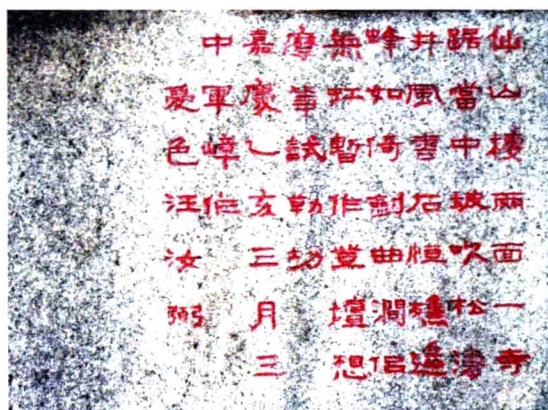 仙山樓兩面一奇
踞當中坡吹松濤
井風雲石恒礁遙
峰如倚劍曲澗侣
無虹暫作登壇想
摩崖試勒功
嘉慶乙亥三月三
中軍嶂作
愛色汪汝弼